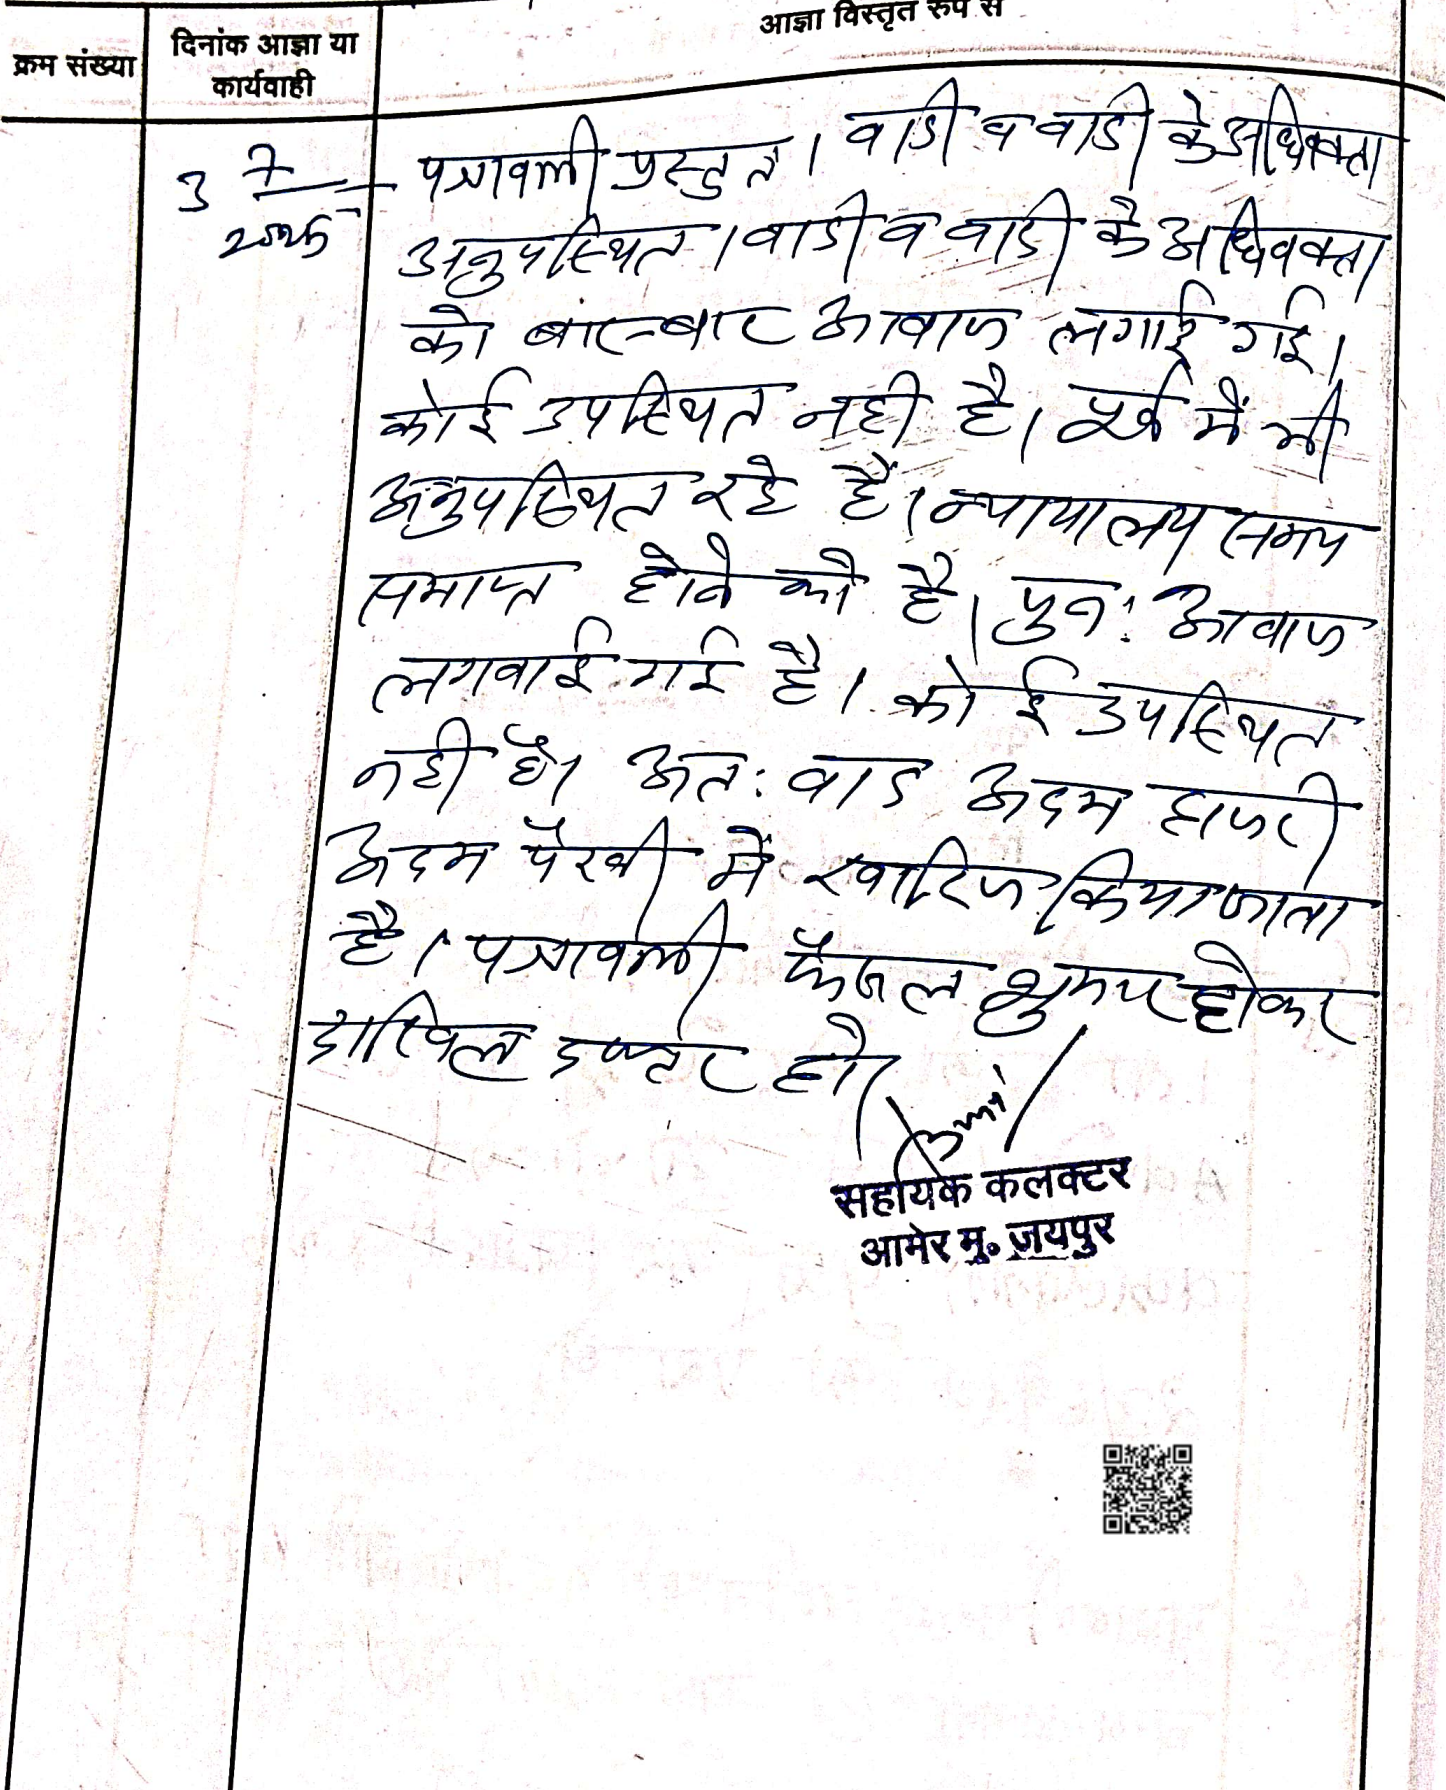 आज्ञा विस्तृत रुप से
क्रम संख्या
दिनांक आज्ञा या
कार्यवाही
3 7
पत्रावली प्रस्तुत। वादी व वादी के अधिवक्ता
अनुपस्थित। वादी व वादी के अधिवक्ता
को बार-बार आवाज लगाई गई।
कोई उपस्थित नही है। पूर्व में भी
अनुपस्थित रहे हैं। न्यायालय समय
समाप्त होने को है। पुनः आवाज
लगवाई गई है। कोई उपस्थित
नही है। अतः वाद अदम हाजरी
अदम पैरवी में खारिज किया जाता
है। पत्रावली फैजल शुमार होकर
दाखिल दफ्तर हो।
सहायक कलक्टर
आमेर मु॰ जयपुर